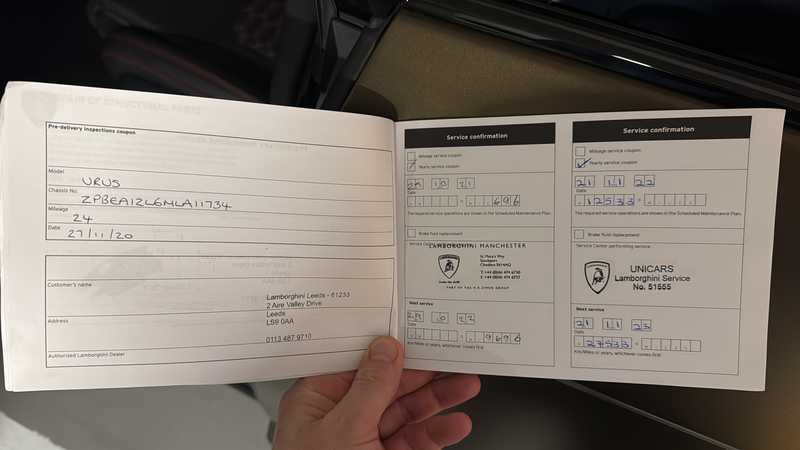 Pre-delivery inspections coupon
Model
URUS
Chassis No.
ZPBEA1ZL6MLA11734
Mileage
24
Date
27/11/20
Customer's name
Address
Lamborghini Leeds - 61233
2 Aire Valley Drive
Leeds
LS9 0AA
0113 487 9710
Authorized Lamborghini Dealer
Service confirmation
Mileage service coupon
Yearly service coupon
10 21
Date
696
The required service operations are shown in the Scheduled Maintenance Plan.
Brake fluid replacement
Service Center
LAMBORGHINI MANCHESTER
St. Mary's Way
Stockport
Cheshire SK1 4AQ
PART OF THE H.R. OWEN GROUP
Next service
22
9696
Km/Miles or years, whichever comes first
Service confirmation
Mileage service coupon
Yearly service coupon
21 11 22
Date
12533
The required service operations are shown in the Scheduled Maintenance Plan.
Brake fluid replacement
Service Center performing service
UNICARS
Lamborghini Service
No. 51555
Next service
21 11 23
27533
Km/Miles or years, whichever comes first